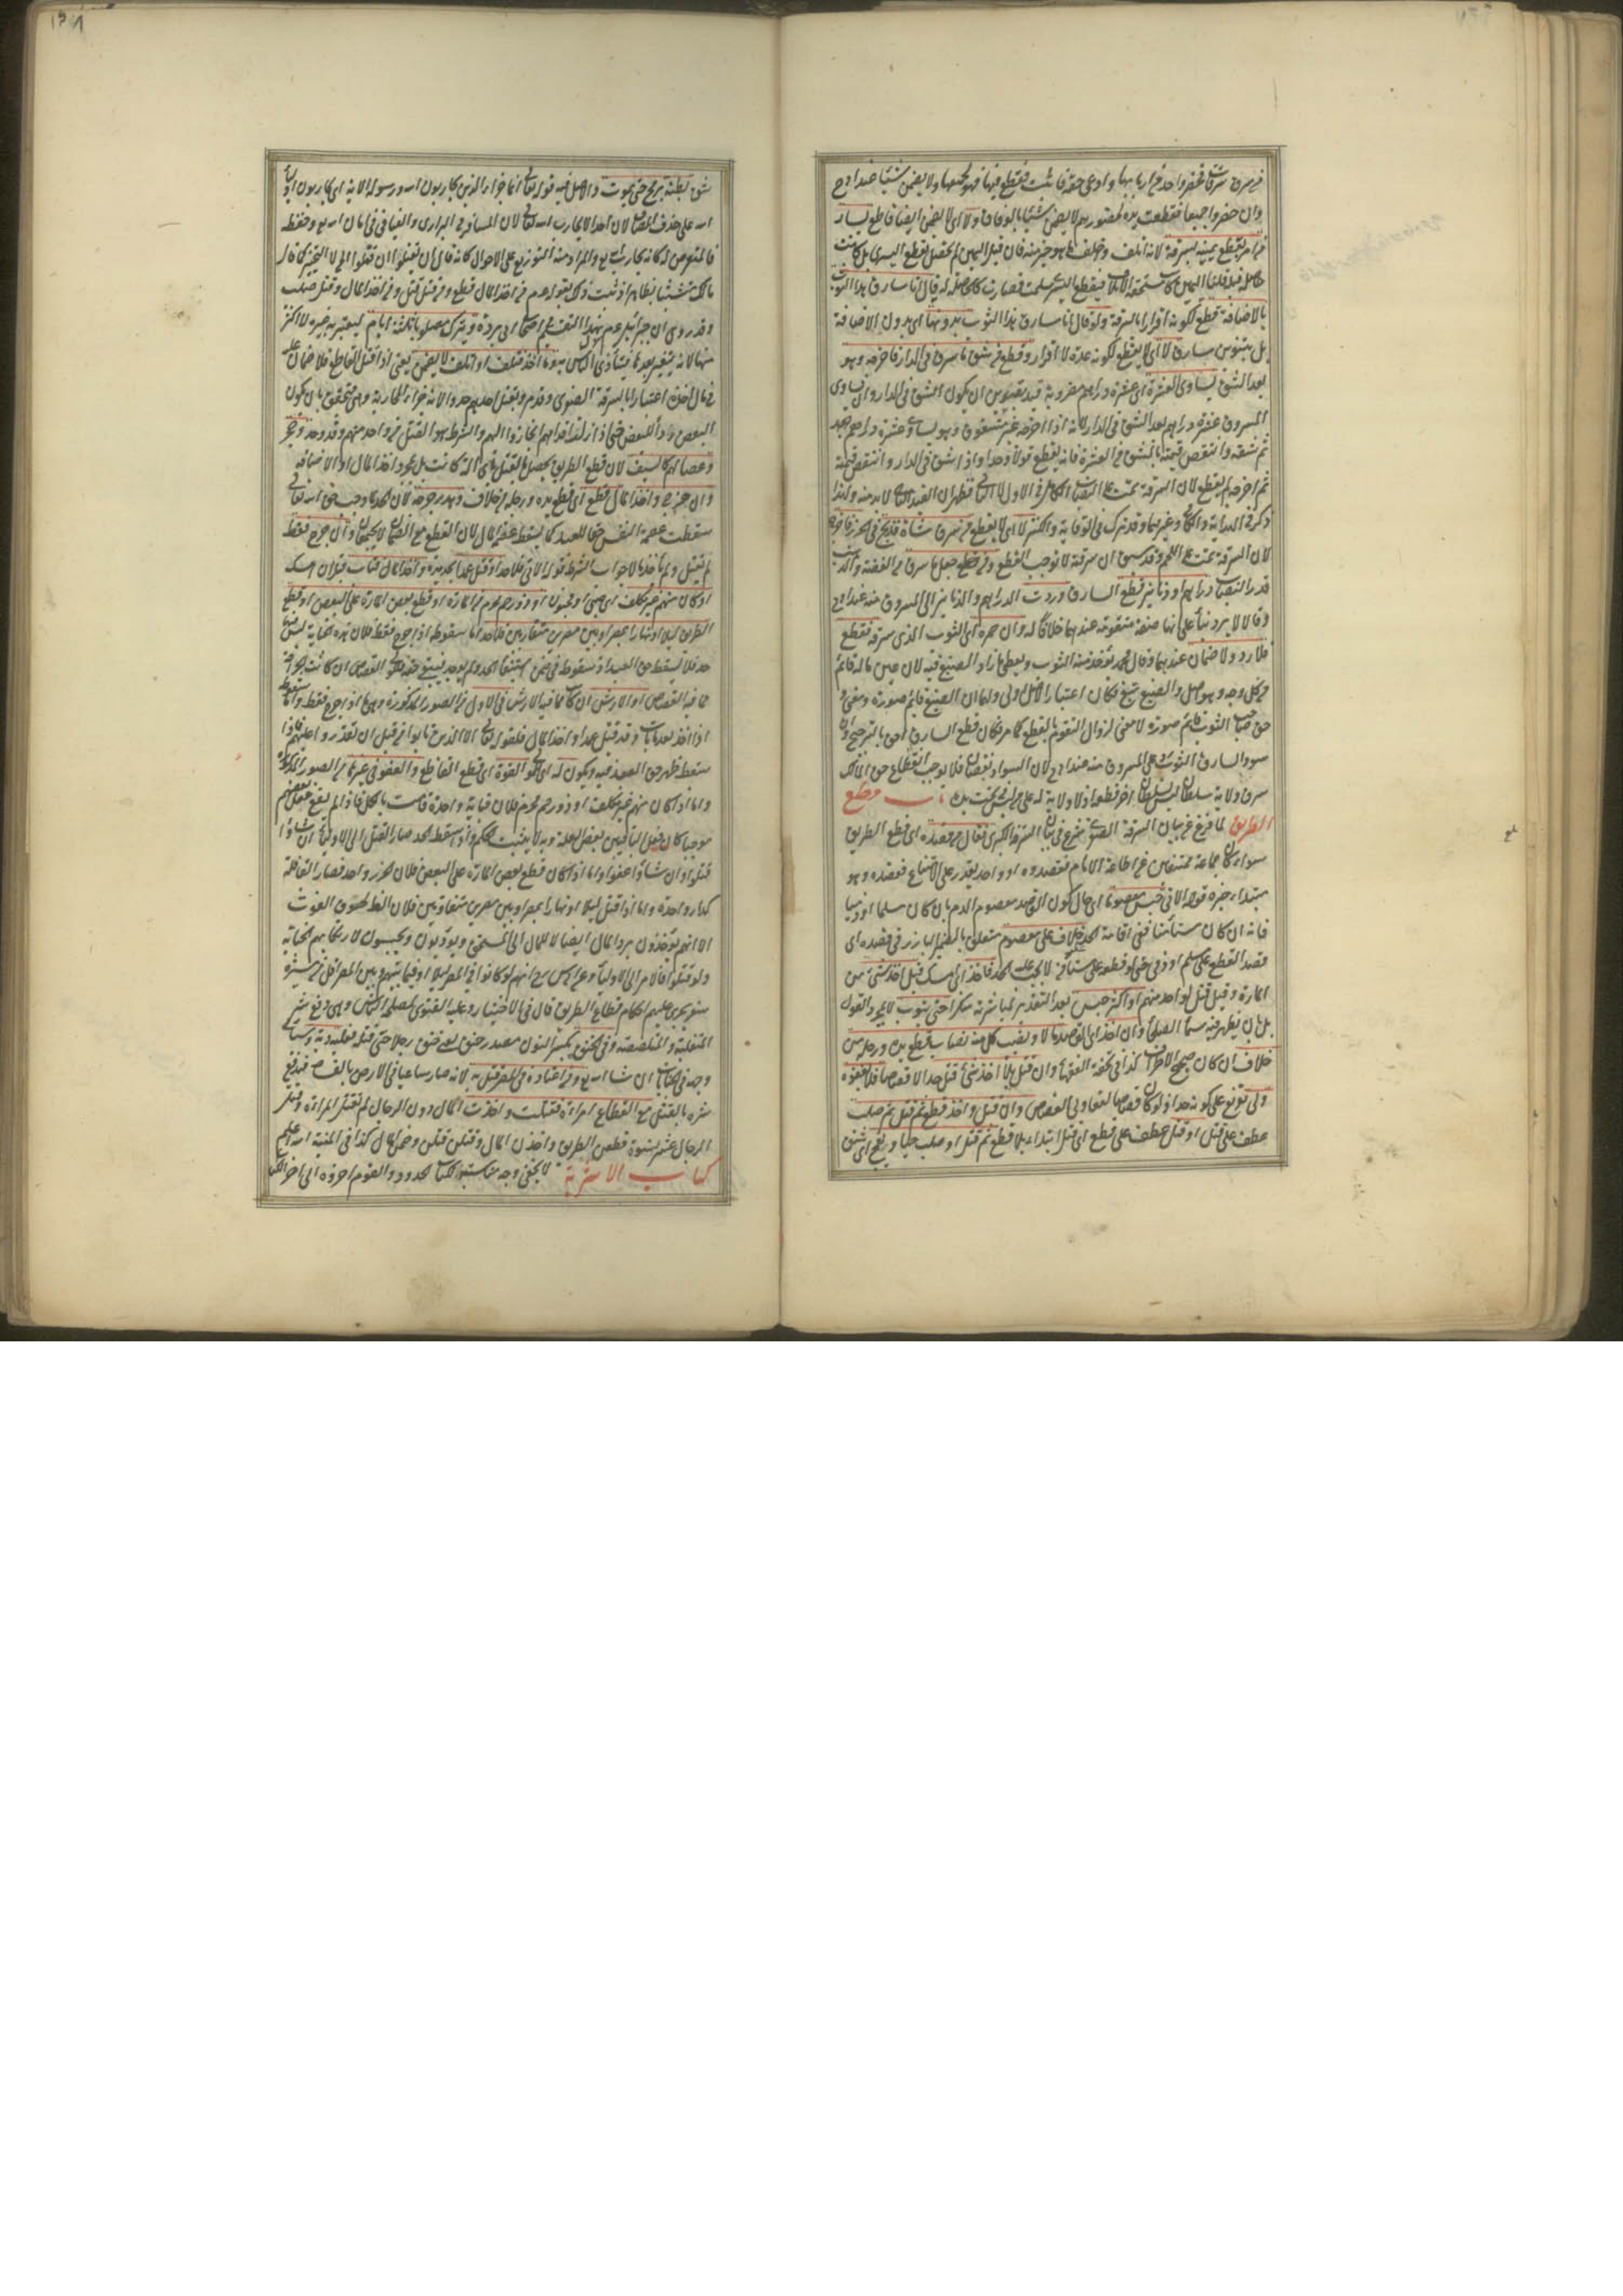 وان حضروا جميعا فقطعت يده لحضورهم لا يضمن شيئا بالوفاق ولا اي لا يضمن ايضا قاطع يسار
من امر بقطع يمينه بسرقة لانه اتلف وخلف ما هو خير منه فان قيل اليمين لم تحصل بقطع اليسرى بل كانت
بالاضافة قطع لكونه اقرارا بالسرقة ولو قال انا سارق هذا الثوب بدونها اي بدون الاضافة
بل بتنوين سارق لا اي لا يقطع لكونه عدة لا اقرار وقطع من شق ما سرق في الدار فاخرجه وهو
بعد الشق يساوي العشرة اي عشرة دراهم مضروبة قيد بقيدين ان يكون الشق في الدار وان يساوي
المسروق عشرة دراهم بعد الشق في الدار لانه اذا اخرجه غير مشقوق وهو يساوي عشرة دراهم
ثم شقه وانتقص قيمته بالشق من العشرة فانه يقطع قولا واحدا واذا شق في الدار وانتقص قيمته
ثم اخرجه لم يقطع لان السرقة تمت على النصاب الكامل في الاول لا الثاني فظهر ان القيد الثاني لا بد منه ولذا
ذكر في الهداية والكافي وغيرهما وقد ترك في الوقاية والكنز لا اي لا يقطع من سرق شاة فذبح في الحرز فاخرج
لان السرقة تمت على اللحم وقد سبق ان سرقته لا توجب القطع ومن قطع جعل ما سرق من الفضة والذهب
قدر النصاب دراهم او دنانير قطع السارق وردت الدراهم والدنانير الى المسروق منه عند ابي ح
وقالا لا يرد بناء على انها صنعة متقومة عندهما خلافا له وان حمره اي الثوب الذي سرقه فقطع
فلا رد ولا ضمان عندهما وقال محمد يؤخذ منه الثوب ويعطى ما زاد الصبغ فيه لان عين ماله قائم
من كل وجه وهو اصل والصبغ تبع فكان اعتبار الاصل اولى ولهما ان الصبغ قائم صورة ومعنى و
حق صاحب الثوب قائم صورة لا معنى لزوال التقوم بالقطع كما مر فكان قطع السارق احق بالترجيح وان
سود السارق الثوب رد على المسروق منه عند ابي ح لان السواد نقصان فلا يوجب انقطاع حق المالك
سرق في ولاية سلطان ليس لسلطان آخر قطعه اذ لا ولاية له على من ليس تحت يده باب قطع
الطريق لما فرغ من بيان السرقة الصغرى شرع في بيان السرقة الكبرى فقال من قصده اي قطع الطريق
سواء كان جماعة ممتنعين عن اطاعة الامام فقصدوه او واحد يقدر على الامتناع فقصده وهو
مبتداء خبره قوله الآتي حبس معصوما اي حال كون القاصد معصوم الدم بان كان مسلما او ذميا
فانه ان كان مستأمنا ففي اقامة الحد خلاف على معصوم متعلق بالضمير البارز في قصده اي
قصد القطع على مسلم او ذمي حتى لو قطعه على مستأمن لا يجب عليه الحد فاخذ اي امسك قبل اخذ شيء من
المارة وقبل قتل لواحد منهم او اكثر حبس بعد التعزير لمباشرته منكرا حتى يتوب لا بمجرد القول
بل بان يظهر فيه سيما الصلحاء وان اخذ اي القاصد مالا ونصيب كل منه نصاب قطع يده ورجله من
خلاف ان كان صحيح الاطراف كذا في تحفة الفقهاء وان قتل بلا اخذ شيء قتل حدا لا قصاصا فلا يعفوه
ولي تفريع على كونه حدا اذ لو كان قصاصا لعفا ولي القصاص وان قتل واخذ قطع ثم قتل ثم صلب
عطف على قتل او قتل عطف على قطع اي قتل ابتداء بلا قطع ثم قتل او صلب حيا ويبعج اي يشق
شق بطنه برمح حتى يموت والاصل فيه قوله تعالى انما جزاء الذين يحاربون الله ورسوله الآية اي يحاربون اولياء
الله على حذف المضاف لان احدا لا يحارب الله تعالى لان المسافر في البراري والفيافي في امان الله تع وحفظه
فالمتعرض له كانه يحارب الله تع والمراد منه التوزيع على الاحوال كانه قال ان يقتلوا ان قتلوا الخ لا التخيير كما قال
مالك متشبثا بظاهر او ثبت ذلك بقوله عم من اخذ المال قطع ومن قتل قتل ومن اخذ المال وقتل صلب
وقد روي ان جبرائيل عم نزل بهذا التقسيم في اصحاب ابي بردة ويترك مصلوبا ثلثة ايام ليعتبر به غيره لا اكثر
منها لانه يتغير بعدها فيتأذى الناس به وما اخذ فتلف او اتلف لا يضمن يعني اذا قتل القاطع فلا ضمان عليه
في مال اخذه اعتبارا بالسرقة الصغرى وقد مر وبقتل احدهم حدوا لانه جزاء المحاربة وهي تتحقق بان يكون
البعض ردأ للبعض حتى اذا زلت اقدامهم انحازوا اليهم والشرط هو القتل من واحد منهم وقد وجد وحجر
وعصا لهم كالسيف لان قطع الطريق يحصل بالقتل باي آلة كانت بل بمجرد اخذ المال او الاخافة
وان جرح واخذ المال قطع اي قطع يده ورجله من خلاف وهدر جرحه لان الحد لما وجب حق الله تعالى
سقطت عصمة النفس حقا للعبد كما يسقط عصمة المال لان القطع مع الضمان لا يجتمعان وان جرح فقط
لم يقتل ولم يأخذ مالا جواب الشرط قوله الآتي فلا حد او قتل عمدا بحديدة واخذ المال فتاب قبل ان يمسك
او كان منهم غير مكلف اي صبي او مجنون او ذو رحم محرم من المارة او قطع بعض المارة على البعض او قطع
الطريق ليلا او نهارا بمصر او بين مصرين متقاربين فلا حد اما سقوطه اذا جرح فقط فلان هذه الجناية ليس فيها
مما فيه القصاص او الارش ان كان مما فيه الارش في الاول من الصور المذكورة وهي ما اذا جرح فقط واما سقوطه
اذا اخذ بعد ما تاب وقد قتل عمدا واخذ المال فلقوله تعالى الا الذين تابوا من قبل ان تقدروا عليهم فاذا
سقط ظهر حق العبد فيه ويكون له اي للولي القود اي قطع القاطع والعفو في غيرها من الصور المذكورة
واما اذا كان منهم غير مكلف او ذو رحم محرم فلان جناية واحدة قامت بالكل فاذا لم يقع فعل بعضهم
موجبا كان فعل الباقين بعض العلة وبه لا يثبت الحكم واذا سقط الحد صار القتل الى الاولياء ان شاؤا
قتلوا وان شاؤا عفوا واما اذا كان قطع بعض المارة على البعض فلان الحرز واحد فصار القافلة
كدار واحدة واما اذا قتل ليلا او نهارا بمصر او بين مصرين متقاربين فلان الظاهر لحوق الغوث
الا انهم يؤخذون برد المال ايصالا للمال الى المستحق ويؤدبون ويحبسون لارتكابهم الجناية
ولو قتلوا فالامر الى الاولياء وعن ابي يوسف رح انهم لو كانوا في المصر ليلا او فيما بينهم وبين المصر اقل من مسيرة
سفر يجري عليهم احكام قطاع الطريق قال في الاختيار وعليه الفتوى لمصلحة الناس وهي دفع شر
المتغلبة والمتلصصة وفي الخنق بكسر النون مصدر خنق يعني خنق رجلا حتى قتله فعليه دية وسيأتي
وجهه في الجنايات ان شاء الله تع ومن اعتاده في المصر قتل به لانه صار ساعيا في الارض بالفساد فيدفع
شره بالقتل مع القطاع امراة فقتلت واخذت المال دون الرجال لم تقتل المراة وقتل
الرجال عشر نسوة قطعن الطريق واخذن المال وقتلن قتلن وضمن المال كذا في المنية الله اعلم
كتاب الاشربة لا يخفى وجه مناسبته لكتاب الحدود والقوم اخروه الى آخر الكتاب